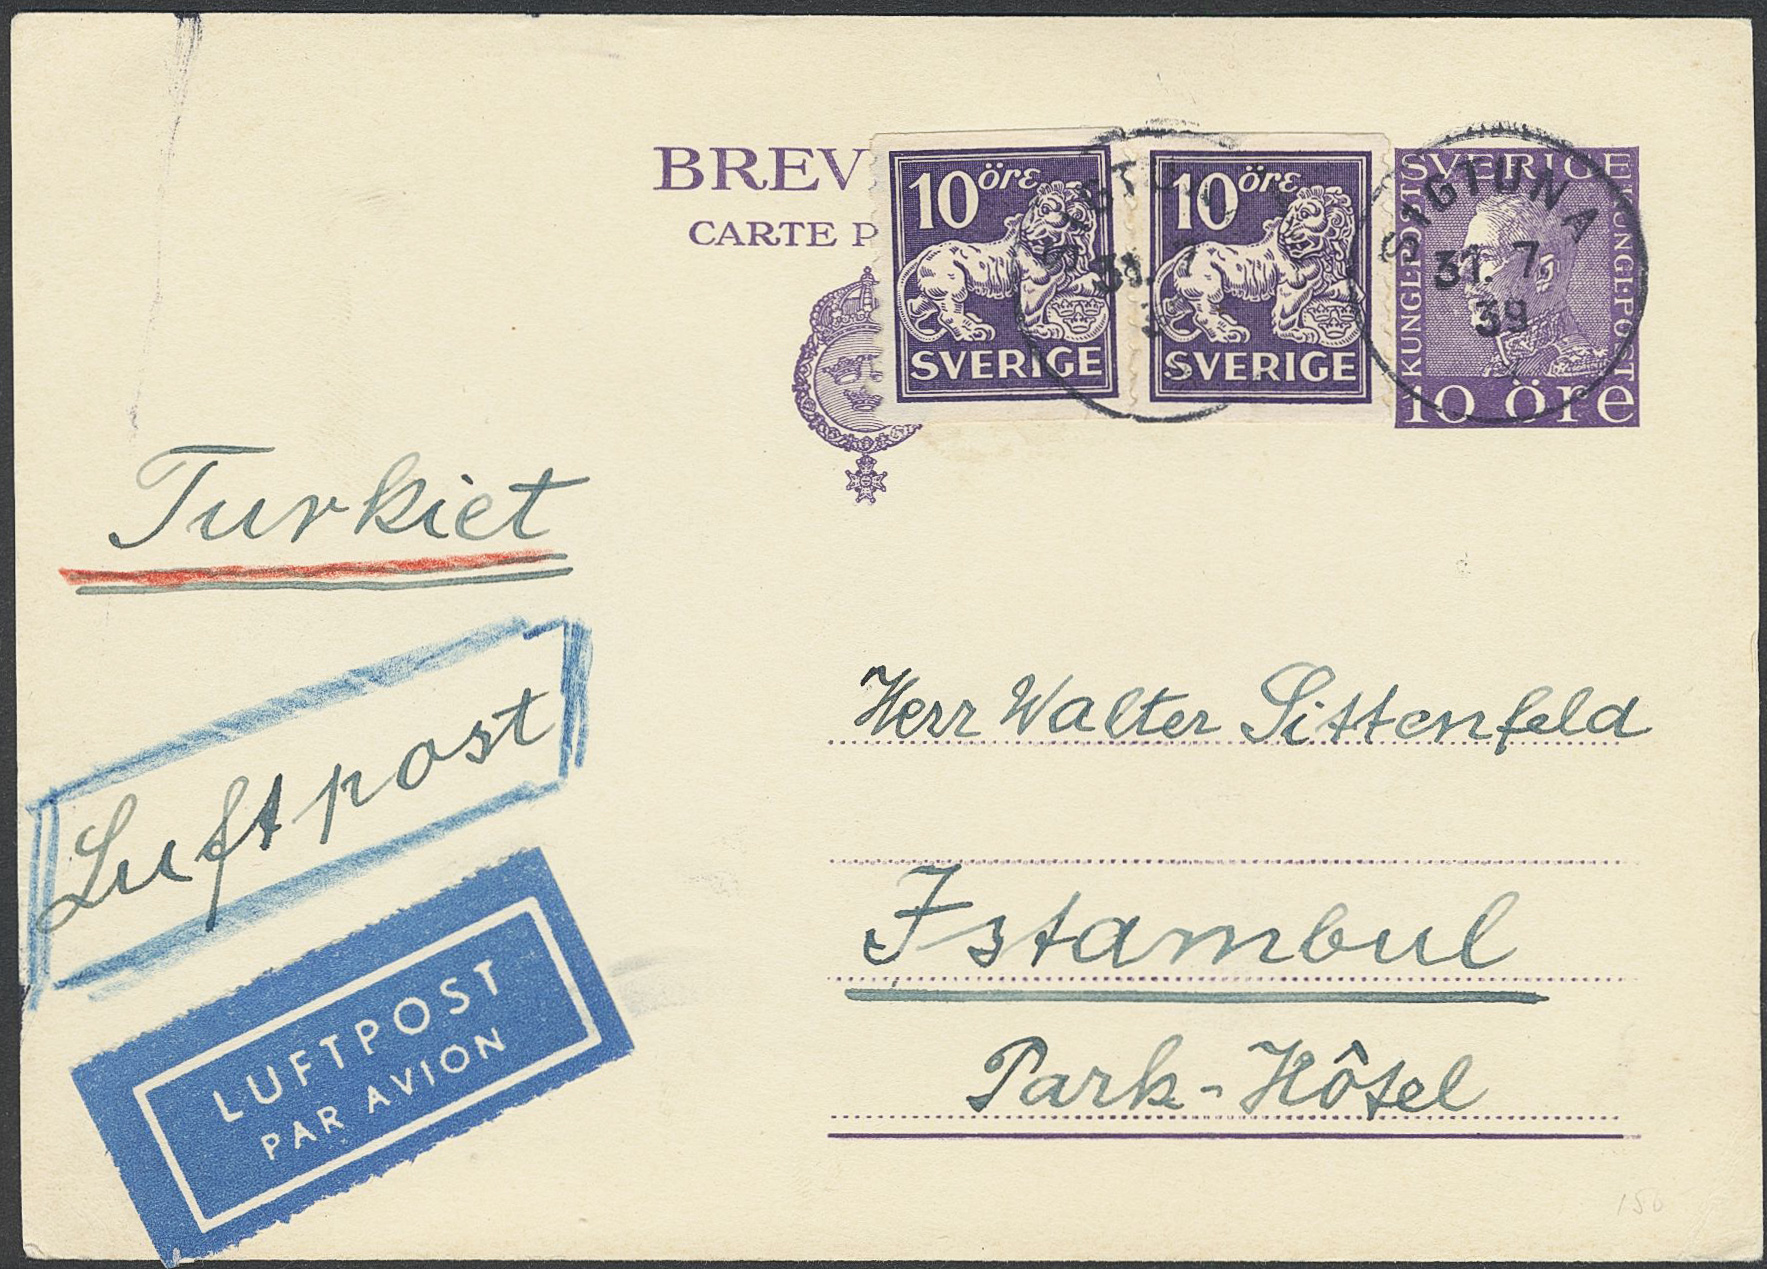 BREV
CARTE P
10 öre
SVERIGE
10 öre
SVERIGE
SVERIGE
KUNGL·POST
KUNGL·POST
10 öre
SIGTUNA
31. 7
39
Turkiet
Luftpost
LUFTPOST
PAR AVION
Herr Walter Sittenfeld
Istambul
Park-Hôtel
150